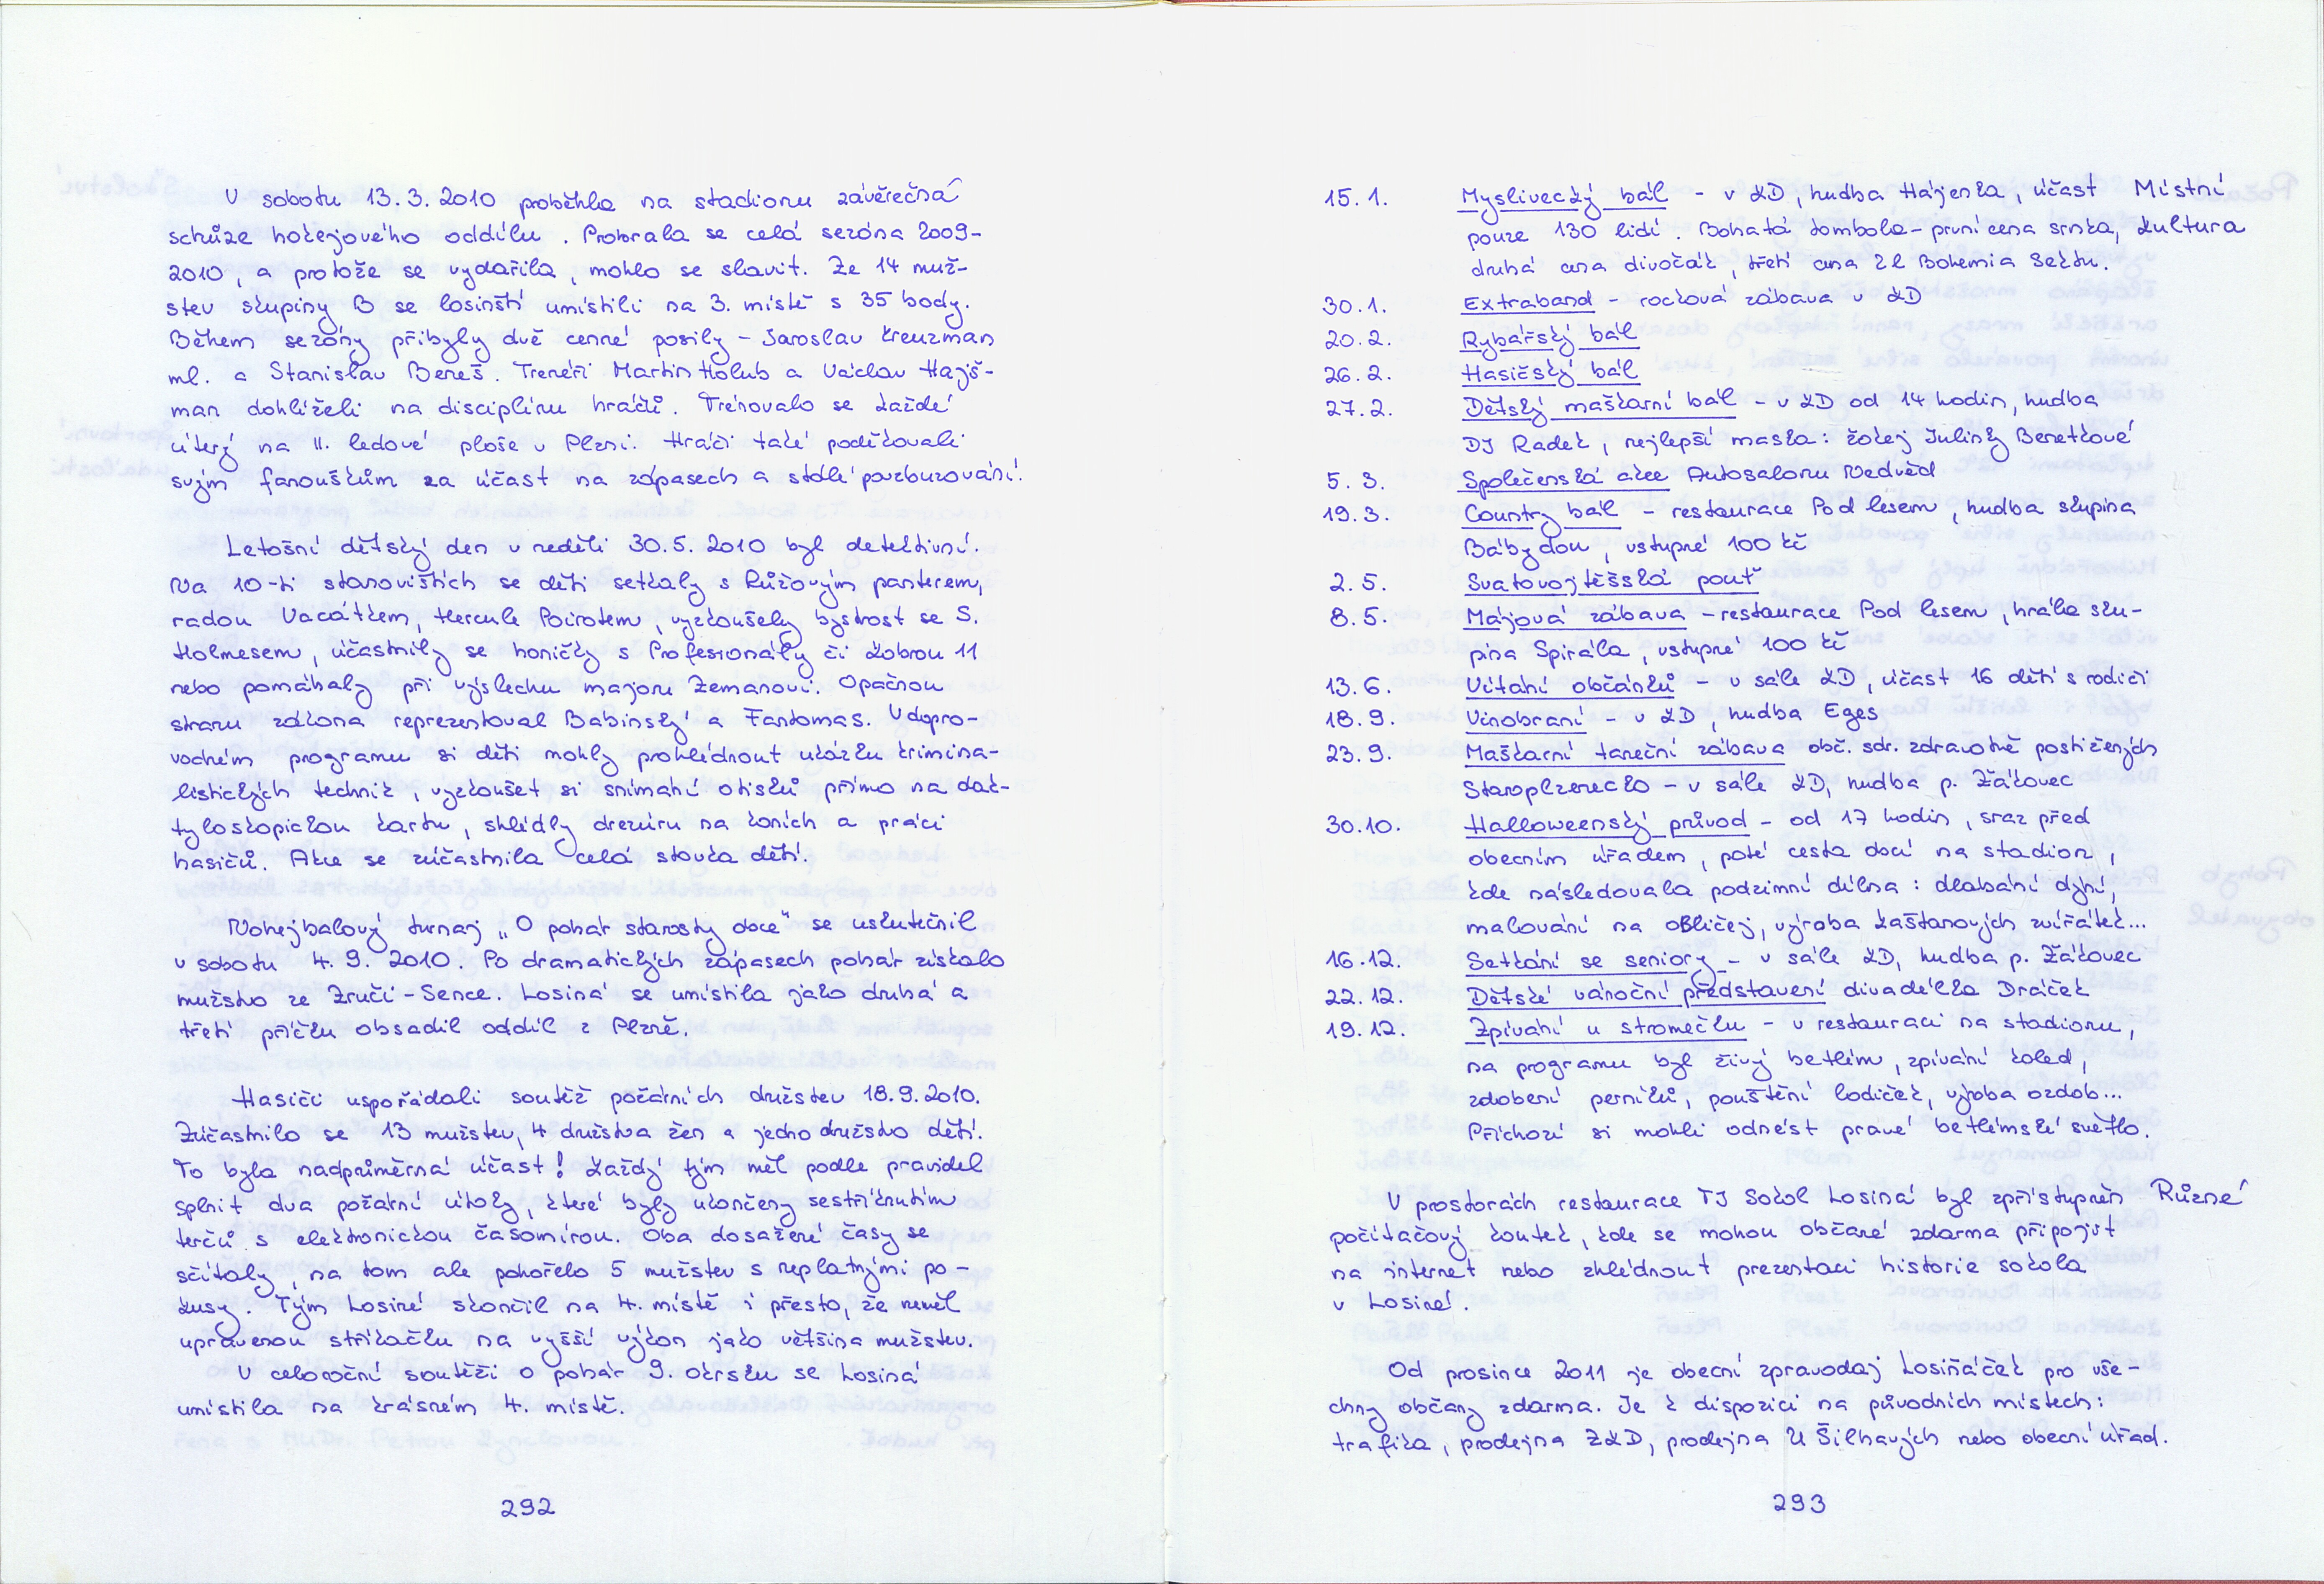 V sobotu 13.3.2010 proběhla na stadionu závěrečná
schůze hokejového oddílu. Probrala se celá sezóna 2009-
2010, a protože se vydařila, mohlo se slavit. Ze 14 muž-
stev skupiny B se losinští umístili na 3. místě s 35 body.
Během sezóny přibyly dvě cenné posily – Jaroslav Kreuzman
ml. a Stanislav Bereš. Trenéři Martin Holub a Václav Hajš-
man dohlíželi na disciplínu hráčů. Trénovalo se každé
úterý na II. ledové ploše v Plzni. Hráči také poděkovali
svým fanouškům za účast na zápasech a stálé povzbuzování.
Letošní dětský den v neděli 30.5.2010 byl detektivní.
Na 10-ti stanovištích se děti setkaly s Růžovým panterem,
radou Vacátkem, Hercule Poirotem, vyzkoušely bystrost se S.
Holmesem, účastnily se honičky s Profesionály či Kobrou 11
nebo pomáhaly při výslechu majoru Zemanovi. Opačnou
stranu zákona reprezentoval Babinský a Fantomas. V dopro-
vodném programu si děti mohly prohlédnout ukázku krimina-
listických technik, vyzkoušet si snímání otisků přímo na dak-
tyloskopickou kartu, shlédly drezúru na koních a práci
hasičů. Akce se zúčastnila celá stovka dětí.
Nohejbalový turnaj „O pohár starosty obce" se uskutečnil
v sobotu 4.9.2010. Po dramatických zápasech pohár získalo
mužstvo ze Zruči-Sence. Losiná se umístila jako druhá a
třetí příčku obsadil oddíl z Plzně.
Hasiči uspořádali soutěž požárních družstev 18.9.2010.
Zúčastnilo se 13 mužstev, 4 družstva žen a jedno družstvo dětí.
To byla nadprůměrná účast! Každý tým měl podle pravidel
splnit dva požární útoky, které byly ukončeny sestříknutím
terčů s elektronickou časomírou. Oba dosažené časy se
sčítaly, na tom ale pohořelo 5 mužstev s neplatnými po-
kusy. Tým Losiné skončil na 4. místě i přesto, že neměl
upravenou stříkačku na vyšší výkon jako většina mužstev.
V celoroční soutěži o pohár 9. okrsku se Losiná
umístila na krásném 4. místě.
292
Místní
kultura
15.1. Myslivecký bál – v KD, hudba Hájenka, účast
pouze 130 lidí. Bohatá tombola – první cena srnka,
druhá cena divočák, třetí cena 2l Bohemia Sektu.
30.1. Extraband – rocková zábava v KD
20.2. Rybářský bál
26.2. Hasičský bál
27.2. Dětský maškarní bál – v KD od 14 hodin, hudba
DJ Radek, nejlepší maska: žokej Julinky Beretkové
5.3. Společenská akce Autosalonu Nedvěd
19.3. Country bál – restaurace Pod lesem, hudba skupina
Báby dou, vstupné 100 Kč
2.5. Svatovojtěšská pouť
8.5. Májová zábava – restaurace Pod lesem, hrála sku-
pina Spirála, vstupné 100 Kč
13.6. Vítání občánků – v sále KD, účast 16 dětí s rodiči
18.9. Vinobraní – v KD, hudba Eges
23.9. Maškarní taneční zábava obč. sdr. zdravotně postižených
Staroplzenecko – v sále KD, hudba p. Žákovec
30.10. Halloweenský průvod – od 17 hodin, sraz před
obecním úřadem, poté cesta obcí na stadion,
kde následovala podzimní dílna: dlabání dýní,
malování na obličej, výroba kaštanových zvířátek...
16.12. Setkání se seniory – v sále KD, hudba p. Žákovec
22.12. Dětské vánoční představení divadélka Dráček
19.12. Zpívání u stromečku – v restauraci na stadionu,
na programu byl živý betlém, zpívání koled,
zdobení perníků, pouštění lodiček, výroba ozdob...
Příchozí si mohli odnést pravé betlémské světlo.
Různé
V prostorách restaurace TJ Sokol Losiná byl zpřístupněn
počítačový koutek, kde se mohou občané zdarma připojit
na internet nebo zhlédnout prezentaci historie sokola
v Losiné.
Od prosince 2011 je obecní zpravodaj Losiňáček pro vše-
chny občany zdarma. Je k dispozici na původních místech:
trafika, prodejna ZKD, prodejna U Šilhavých nebo obecní úřad.
293